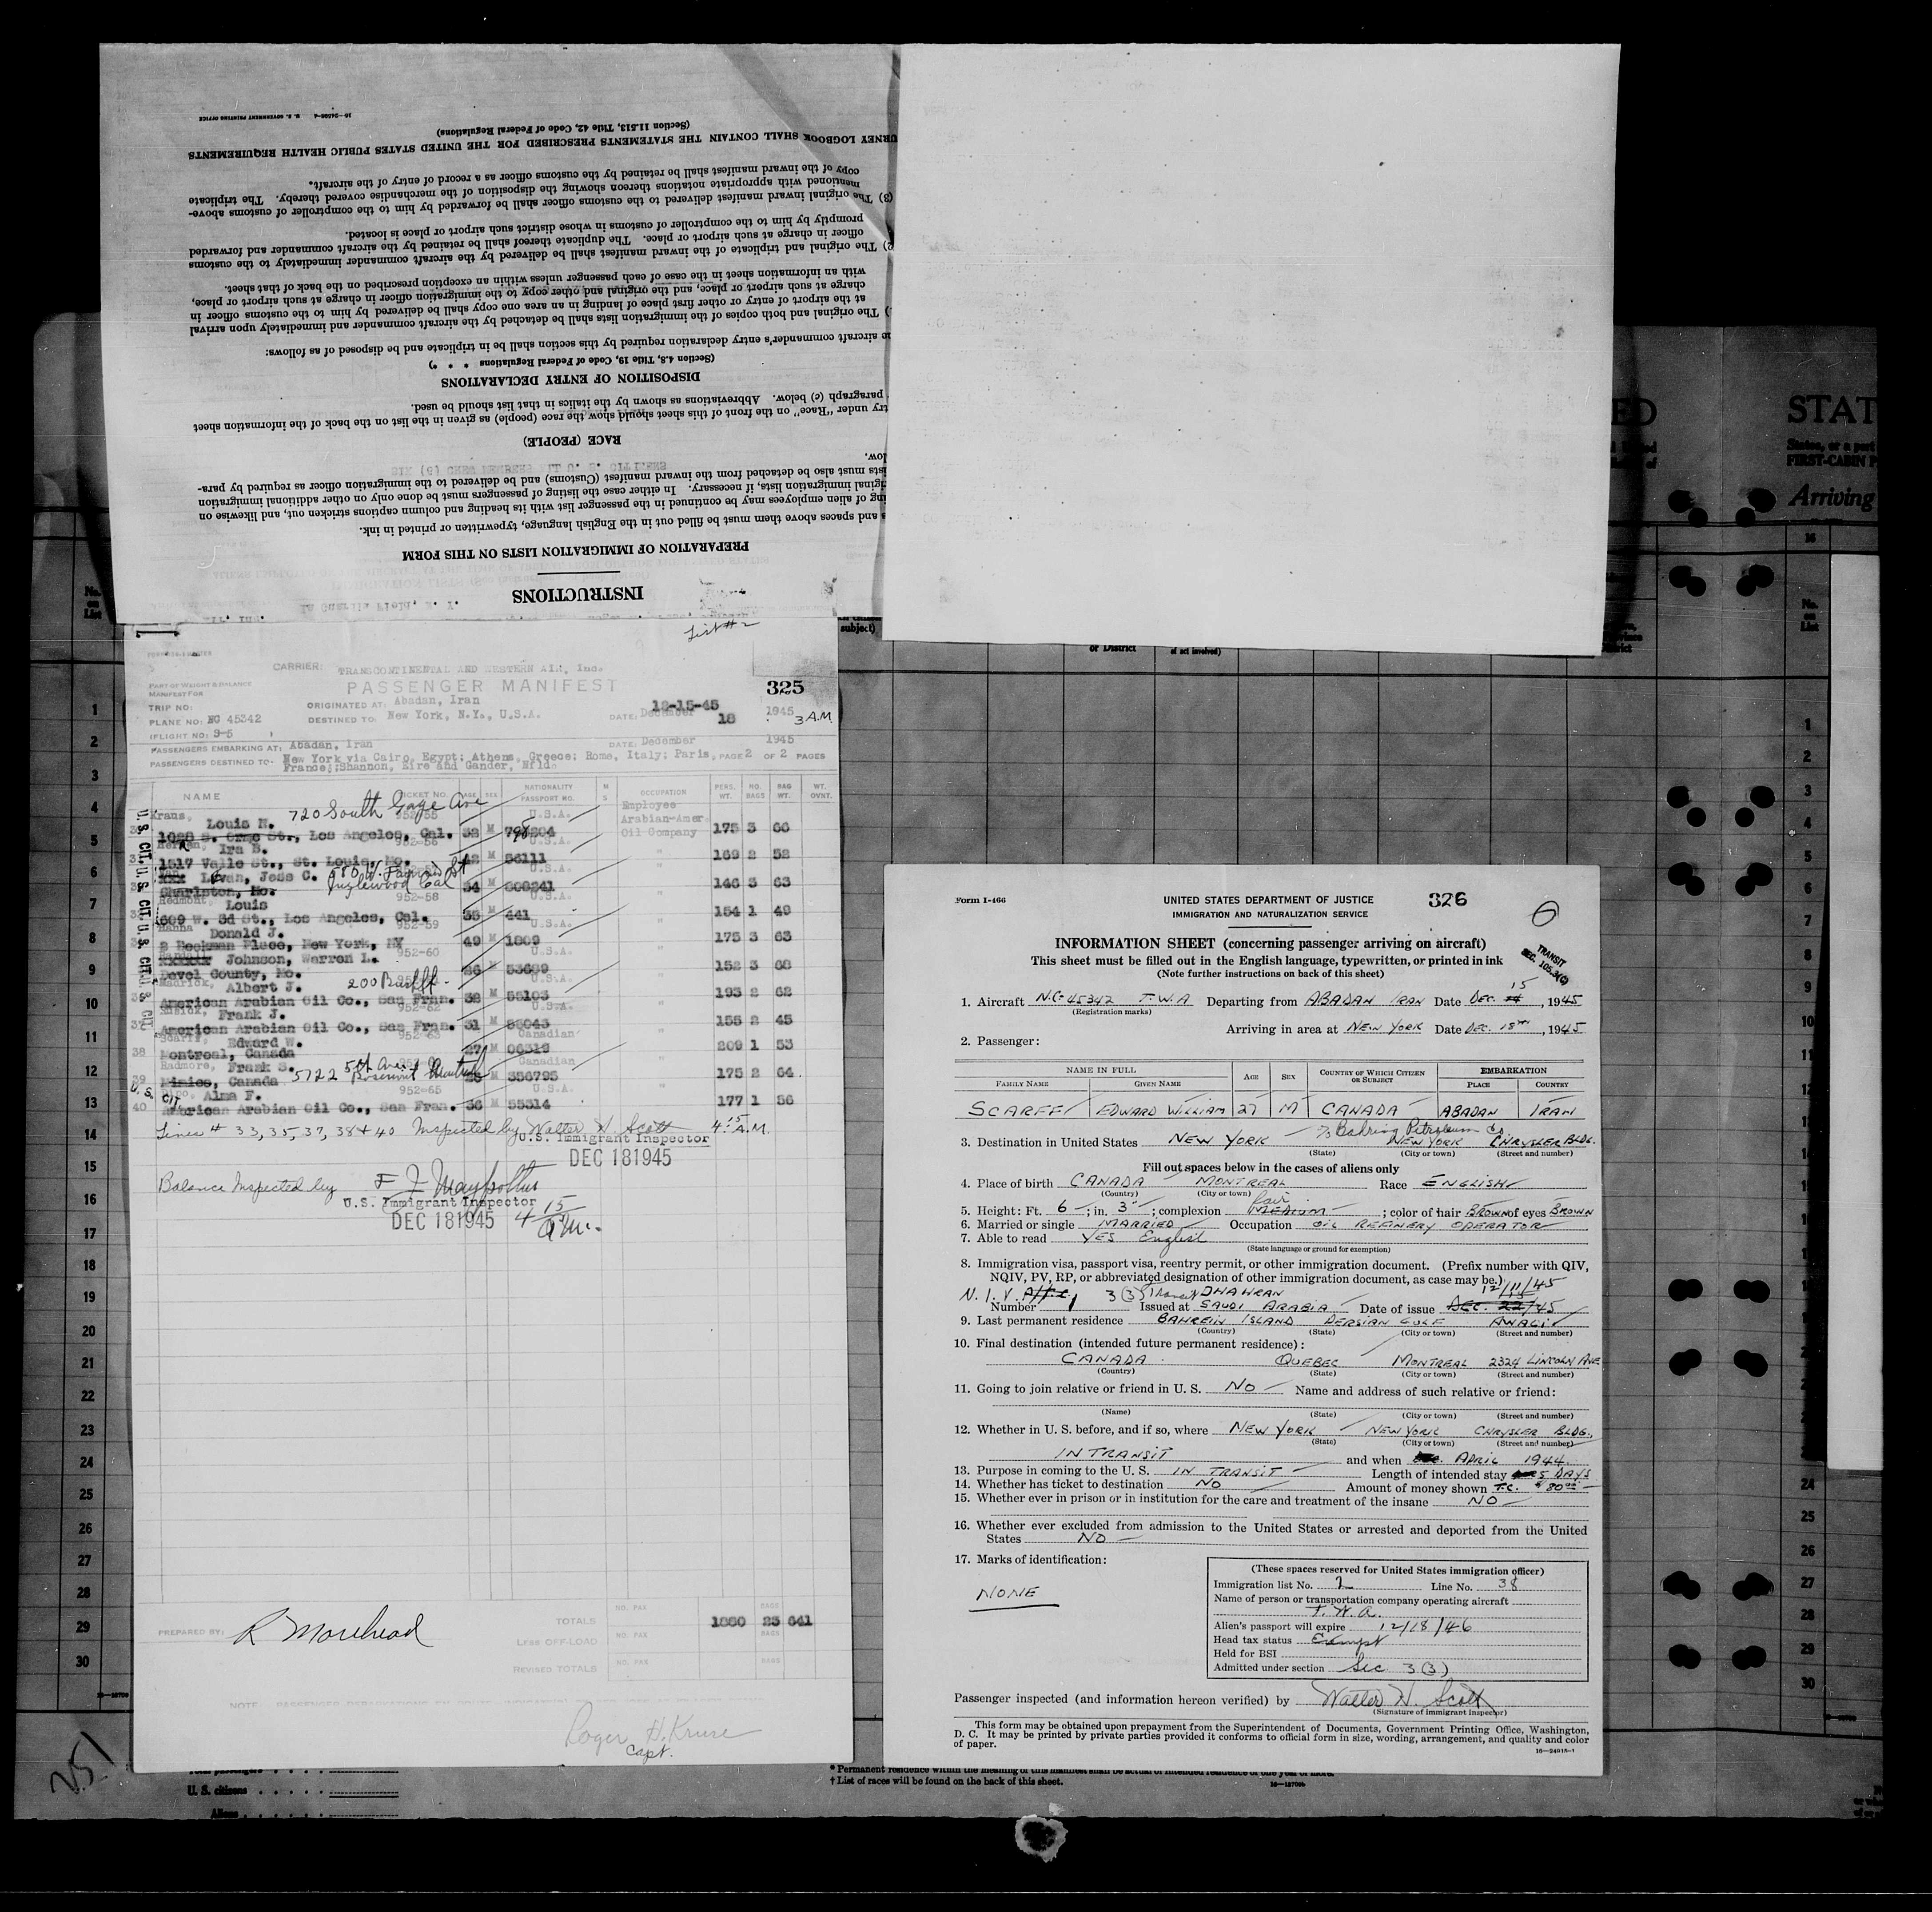 16—24500-4 U. S. GOVERNMENT PRINTING OFFICE
(Section 11.513, Title 42, Code of Federal Regulations)
URNEY LOGBOOK SHALL CONTAIN THE STATEMENTS PRESCRIBED FOR THE UNITED STATES PUBLIC HEALTH REQUIREMENTS
copy of the inward manifest shall be retained by the customs officer as a record of entry of the aircraft.
mentioned with appropriate notations thereon showing the disposition of the merchandise covered thereby. The triplicate
(3) The original inward manifest delivered to the customs officer shall be forwarded by him to the comptroller of customs above-
promptly by him to the comptroller of customs in whose district such airport or place is located.
officer in charge at such airport or place. The duplicate thereof shall be retained by the aircraft commander and forwarded
2) The original and triplicate of the inward manifest shall be delivered by the aircraft commander immediately to the customs
with an information sheet in the case of each passenger unless within an exception prescribed on the back of that sheet.
charge at such airport or place, and the original and other copy to the immigration officer in charge at such airport or place,
at the airport of entry or other first place of landing in an area one copy shall be delivered by him to the customs officer in
) The original and both copies of the immigration lists shall be detached by the aircraft commander and immediately upon arrival
e aircraft commander's entry declaration required by this section shall be in triplicate and be disposed of as follows:
(Section 4.8, Title 19, Code of Federal Regulations * * *)
DISPOSITION OF ENTRY DECLARATIONS
paragraph (c) below. Abbreviations as shown by the italics in that list should be used.
try under "Race" on the front of this sheet should show the race (people) as given in the list on the back of the information sheet
RACE (PEOPLE)
low.
ists must also be detached from the inward manifest (Customs) and be delivered to the immigration officer as required by para-
riginal immigration lists, if necessary. In either case the listing of passengers must be done only on other additional immigration
ing of alien employees may be continued in the passenger list with its heading and column captions stricken out, and likewise on
s and spaces above them must be filled out in the English language, typewritten or printed in ink.
PREPARATION OF IMMIGRATION LISTS ON THIS FORM
INSTRUCTIONS
List # 2
CARRIER: TRANSCONTINENTAL AND WESTERN AIR, Inc.
PASSENGER MANIFEST
325
PART OF WEIGHT & BALANCE
MANIFEST FOR
TRIP NO:
ORIGINATED AT: Abadan, Iran
12-15-45
PLANE NO: NC 45342
DESTINED TO: New York, N.Y., U.S.A.
DATE: December 18 1945 3 A.M.
FLIGHT NO: 9-5
PASSENGERS EMBARKING AT: Abadan, Iran DATE: December 1945
PASSENGERS DESTINED TO: New York via Cairo, Egypt; Athens, Greece; Rome, Italy; Paris, PAGE 2 OF 2 PAGES
France; Shannon, Eire and Gander, Nfld.
NAME TICKET NO. AGE SEX NATIONALITY PASSPORT NO. M S OCCUPATION PERS. WT. NO. BAGS BAG WT. WT. OVNT.
Krans, Louis N. 720 South Gage Ave 952-55 U.S.A. Employee
Arabian-Amer
1028 S. Orme St., Los Angeles, Cal. 32 M Oil Company 175 3 66
Ira B. 952-56 U.S.A.
1517 Valle St., St. Louis, Mo. 42 M 56111 " 169 2 52
Levan, Jess C. U.S.A.
Inglewood Cal
Charlston, Mo. 34 146 3 63
Redmont, Louis 952-58 U.S.A.
609 W. 3d St., Los Angeles, Cal. 35 M 441 " 154 1 49
Hanna Donald J. 952-59 U.S.A.
2 Beekman Place, New York, NY 49 M 1809 " 175 3 63
Johnson, Warren L. 952-60 U.S.A.
Devol County, Mo. 26 M 53689 " 152 3 68
Albert J. U.S.A.
American Arabian Oil Co., San Fran. 32 M 55103 " 193 2 62
Frank J. 952-62 U.S.A.
American Arabian Oil Co., San Fran. 31 M 55043 " 155 2 45
Scarff, Edward W. 952-63 Canadian
38 Montreal, Canada 27 M 06319 " 209 1 53
Radmore, Frank S. Canadian
39 Mimico, Canada 5722 5th Ave Rosemont Montreal M 356795 " 175 2 64
Alma F. 952-65 U.S.A.
40 American Arabian Oil Co., San Fran. 36 M 55314 " 177 1 56
Lines # 33, 35, 37, 38 + 40 Inspected by Walter H. Scott 4:15 A.M.
U.S. Immigrant Inspector
DEC 18 1945
Balance Inspected by
U.S. Immigrant Inspector
DEC 18 1945 4 15 a.m.
TOTALS 1880 25 641
PREPARED BY: R Morehead
LESS OFF-LOAD
REVISED TOTALS
Roger H. Kruse
Capt.
251
U. S. citizens
Aliens
Form I-466
UNITED STATES DEPARTMENT OF JUSTICE
326
6
IMMIGRATION AND NATURALIZATION SERVICE
INFORMATION SHEET (concerning passenger arriving on aircraft)
This sheet must be filled out in the English language, typewritten, or printed in ink
(Note further instructions on back of this sheet)
TRANSIT
SEC. 105.3(C)
1. Aircraft NC-45342 T.W.A Departing from ABADAN IRAN Date DEC. 15, 1945
(Registration marks)
Arriving in area at NEW YORK Date DEC. 18TH, 1945
2. Passenger:
NAME IN FULL AGE SEX COUNTRY OF WHICH CITIZEN OR SUBJECT EMBARKATION
FAMILY NAME GIVEN NAME PLACE COUNTRY
SCARFF EDWARD WILLIAM 27 M CANADA ABADAN IRAN
c/o Bahrein Petroleum Co.
3. Destination in United States NEW YORK NEW YORK CHRYSLER BLDG.
(State) (City or town) (Street and number)
Fill out spaces below in the cases of aliens only
4. Place of birth CANADA MONTREAL Race ENGLISH
(Country) (City or town)
fair
5. Height: Ft. 6; in. 3"; complexion MEDIUM; color of hair BROWN of eyes BROWN
6. Married or single MARRIED Occupation OIL REFINERY OPERATOR
7. Able to read YES English
(State language or ground for exemption)
8. Immigration visa, passport visa, reentry permit, or other immigration document. (Prefix number with QIV,
NQIV, PV, RP, or abbreviated designation of other immigration document, as case may be.)
12/11/45
N.I.V. 3(3) Transit DHAHRAN
Number Issued at SAUDI ARABIA Date of issue DEC. 22/45
9. Last permanent residence BAHREIN ISLAND PERSIAN GULF AWALI
(Country) (State) (City or town) (Street and number)
10. Final destination (intended future permanent residence):
CANADA QUEBEC MONTREAL 2324 LINCOLN AVE
(Country) (State) (City or town) (Street and number)
11. Going to join relative or friend in U. S. NO Name and address of such relative or friend:
(Name) (State) (City or town) (Street and number)
12. Whether in U. S. before, and if so, where NEW YORK NEW YORK CHRYSLER BLDG.,
(State) (City or town) (Street and number)
IN TRANSIT and when APRIL 1944.
13. Purpose in coming to the U. S. IN TRANSIT Length of intended stay 5 DAYS
14. Whether has ticket to destination NO Amount of money shown T.C. $80.00
15. Whether ever in prison or in institution for the care and treatment of the insane NO
16. Whether ever excluded from admission to the United States or arrested and deported from the United
States NO
17. Marks of identification:
NONE
(These spaces reserved for United States immigration officer)
Immigration list No. 2 Line No. 38
Name of person or transportation company operating aircraft
T.W.A.
Alien's passport will expire 12/18/46
Head tax status Exempt
Held for BSI
Admitted under section Sec 3(3)
Passenger inspected (and information hereon verified) by Walter H. Scott
(Signature of immigrant inspector)
This form may be obtained upon prepayment from the Superintendent of Documents, Government Printing Office, Washington,
D. C. It may be printed by private parties provided it conforms to official form in size, wording, arrangement, and quality and color
of paper.
† List of races will be found on the back of this sheet.
STAT
FIRST-CABIN P
Arriving